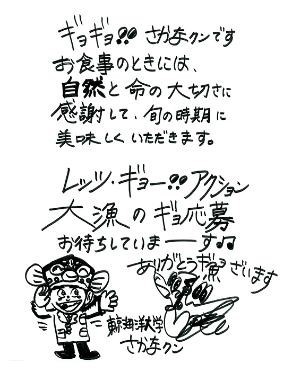 ギョギョ!! さかなクンです
お食事のときには、
自然と命の大切さに
感謝して、旬の時期に
美味しくいただきます。
レッツ・ギョー!! アクション
大漁のギョ応募
お待ちしていまーーす♫
ありがとうギョざいます
東京海洋大学
さかなクン